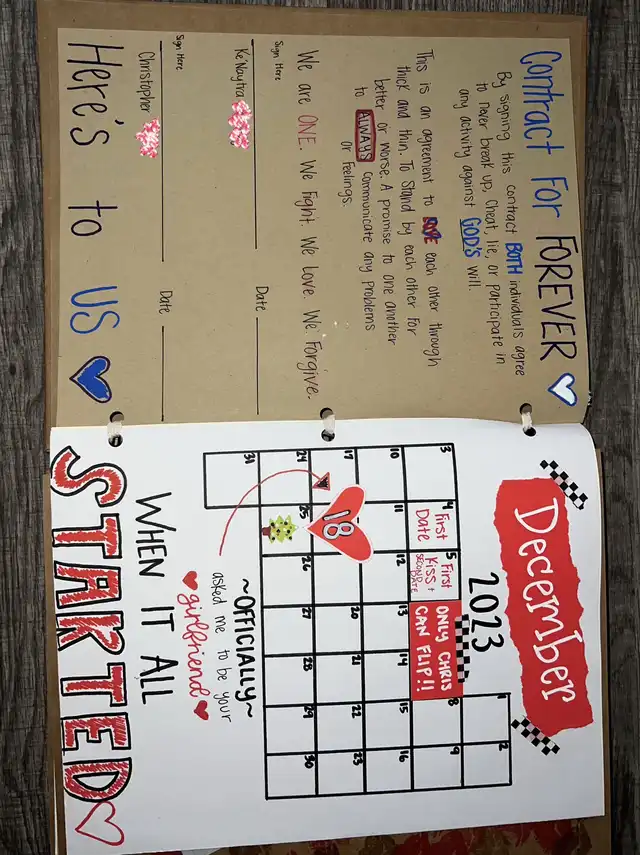 Contract For FOREVER
By signing this contract BOTH individuals agree
to never break up, cheat, lie, or participate in
any activity against GOD'S will.
This is an agreement to LOVE each other through
thick and thin. To Stand by each other for
better or worse. A promise to one another
to ALWAYS communicate any problems
or feelings.
We are ONE. We Fight. We Love. We Forgive.
Sign Here
Ke'Naytra
Date
Sign Here
Christopher
Date
Here's to US
December
2023
1 2
3 4 5 8 9
First Date
First Kiss + SECOND DATE
ONLY CHRIS
CAN FLIP!!
10 11 12 13 14 15 16
17 18 20 21 22 23
24 25 26 27 28 29 30
31
~OFFICIALLY~
asked me to be your
girlfriend
WHEN IT ALL
STARTED